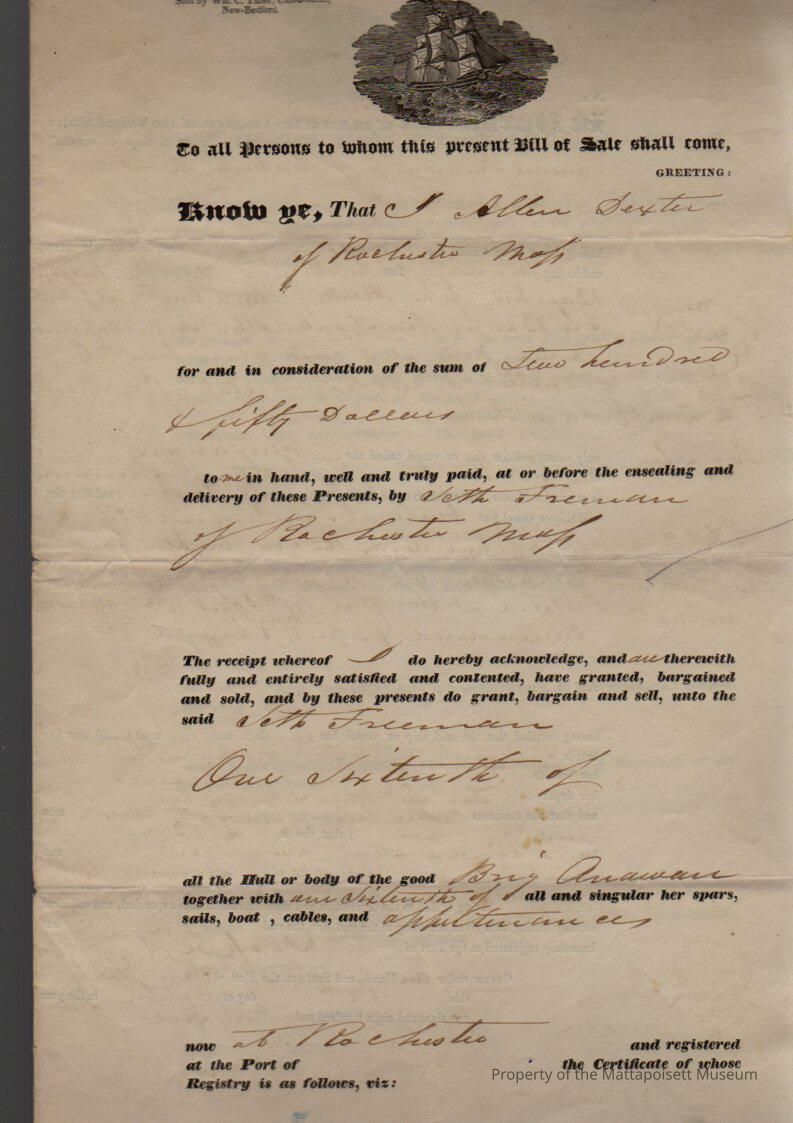 New-Bedford.
To all Persons to whom this present Bill of Sale shall come,
GREETING:
Know ye, That I Allen Dexter
of Rochester Mass
for and in consideration of the sum of Two hundred
& fifty Dollars
to me in hand, well and truly paid, at or before the ensealing and
delivery of these Presents, by Seth Freeman
of Rochester Mass
The receipt whereof I do hereby acknowledge, and am therewith
fully and entirely satisfied and contented, have granted, bargained
and sold, and by these presents do grant, bargain and sell, unto the
said Seth Freeman
One Sixteenth of
all the Hull or body of the good Brig Anawan
together with one Sixteenth of all and singular her spars,
sails, boat , cables, and appurtenances
now at Rochester and registered
at the Port of the Certificate of whose
Registry is as follows, viz:
Property of the Mattapoisett Museum